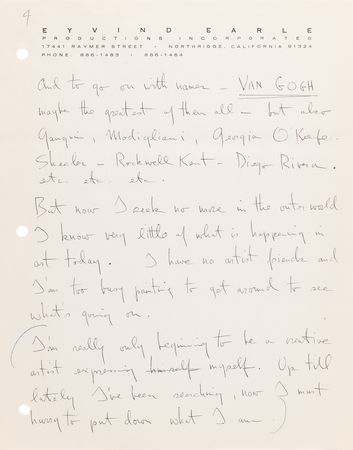 4
EYVIND EARLE
PRODUCTIONS INCORPORATED
17441 RAYMER STREET • NORTHRIDGE, CALIFORNIA 91324
PHONE: 886-1483 • 886-1484
And to go on with names - VAN GOGH
maybe the greatest of them all - but also
Gauguin, Modigliani, Georgia O'Keefe.
Sheeler - Rockwell Kent - Diego Rivera.
etc. etc. etc.
But now I seek no more in the outer world.
I know very little of what is happening in
art today. I have no artist friends and
I'm too busy painting to get around to see
what's going on.
I'm really only beginning to be a creative
artist expressing himself myself. Up till
lately I've been searching, now I must
hurry to put down what I am.